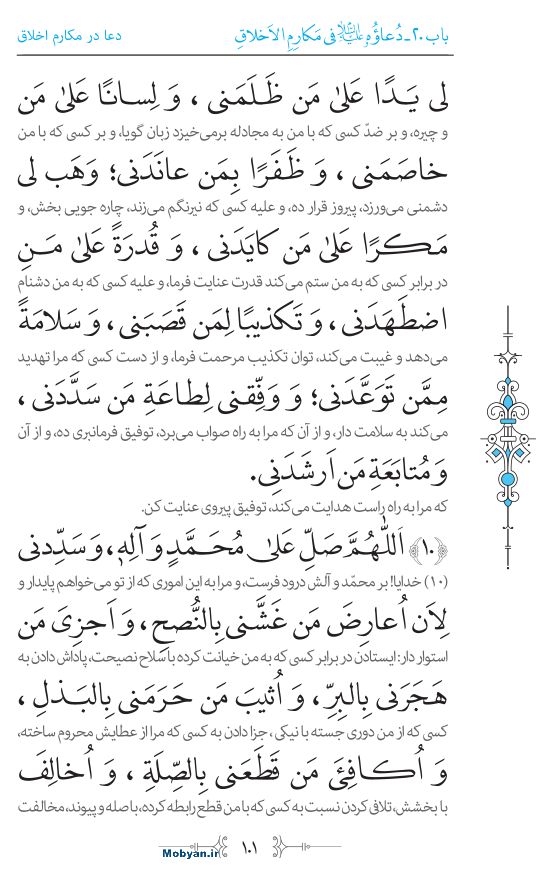 باب ۲۰ـ دُعاؤُه ﷷ فی مَکارِمِ الاَخلاقِ دعا در مکارم اخلاق
لی یَدًا عَلیٰ مَن ظَلَمَنی ، وَ لِسانًا عَلیٰ مَن
و چیره، و بر ضدّ کسی که با من به مجادله برمی‌خیزد زبان گویا، و بر کسی که با من
خاصَمَنی ، وَ ظَفَرًا بِمَن عانَدَنی؛ وَهَب لی
دشمنی می‌ورزد، پیروز قرار ده، و علیه کسی که نیرنگم می‌زند، چاره جویی بخش، و
مَکرًا عَلیٰ مَن کایَدَنی ، وَ قُدرَةً عَلیٰ مَنِ
در برابر کسی که به من ستم می‌کند قدرت عنایت فرما، و علیه کسی که به من دشنام
اضطَهَدَنی ، وَ تَکذیبًا لِمَن قَصَبَنی ، وَ سَلامَةً
می‌دهد و غیبت می‌کند، توان تکذیب مرحمت فرما، و از دست کسی که مرا تهدید
مِمَّن تَوَعَّدَنی؛ وَ وَفِّقنی لِطاعَةِ مَن سَدَّدَنی ،
می‌کند به سلامت دار، و از آن که مرا به راه صواب می‌برد، توفیق فرمانبری ده، و از آن
وَ مُتابَعَةِ مَن اَرشَدَنی.
که مرا به راه راست هدایت می‌کند، توفیق پیروی عنایت کن.
﴿۱۰﴾ اَللّٰهُمَّ صَلِّ عَلیٰ مُحَمَّدٍ وَ آلِهٖ، وَ سَدِّدنی
(۱۰) خدایا! بر محمّد و آلش درود فرست، و مرا به این اموری که از تو می‌خواهم پایدار و
لِاَن اُعارِضَ مَن غَشَّنی بِالنُّصحِ، وَ اَجزِیَ مَن
استوار دار: ایستادن در برابر کسی که به من خیانت کرده با سلاح نصیحت، پاداش دادن به
هَجَرَنی بِالبِرِّ، وَ اُثیبَ مَن حَرَمَنی بِالبَذلِ ،
کسی که از من دوری جسته با نیکی ، جزا دادن به کسی که مرا از عطایش محروم ساخته،
وَ اُکافِئَ مَن قَطَعَنی بِالصِّلَةِ ، وَ اُخالِفَ
با بخشش، تلافی کردن نسبت به کسی که با من قطع رابطه کرده، با صله و پیوند، مخالفت
۱۰۱
Mobyan.ir